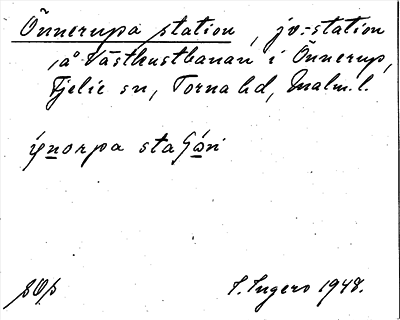 Önnerupa station, jv:-station
å Västkustbanan i Önnerup,
Fjelie sn, Torna hd, Malm. l.
ýnorpa sta
S. Ingers 1948.